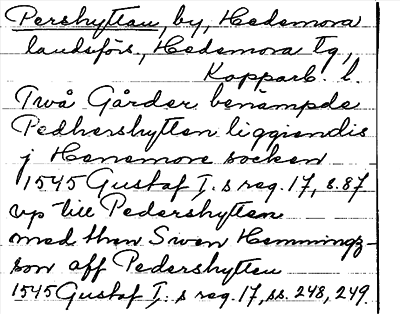 Pershyttan, by, Hedemora
landsförs., Hedemora tg,
Kopparb. l.
Twå Gårder benämpde
Pedhershytten liggiendis
j Henemore socken
1545 Gustaf I. s reg. 17, s. 87
vp till Pedershytten
med then Swen Hemmingz-
son aff Pedershytten
1545 Gustaf I. s reg. 17, ss. 248, 249.